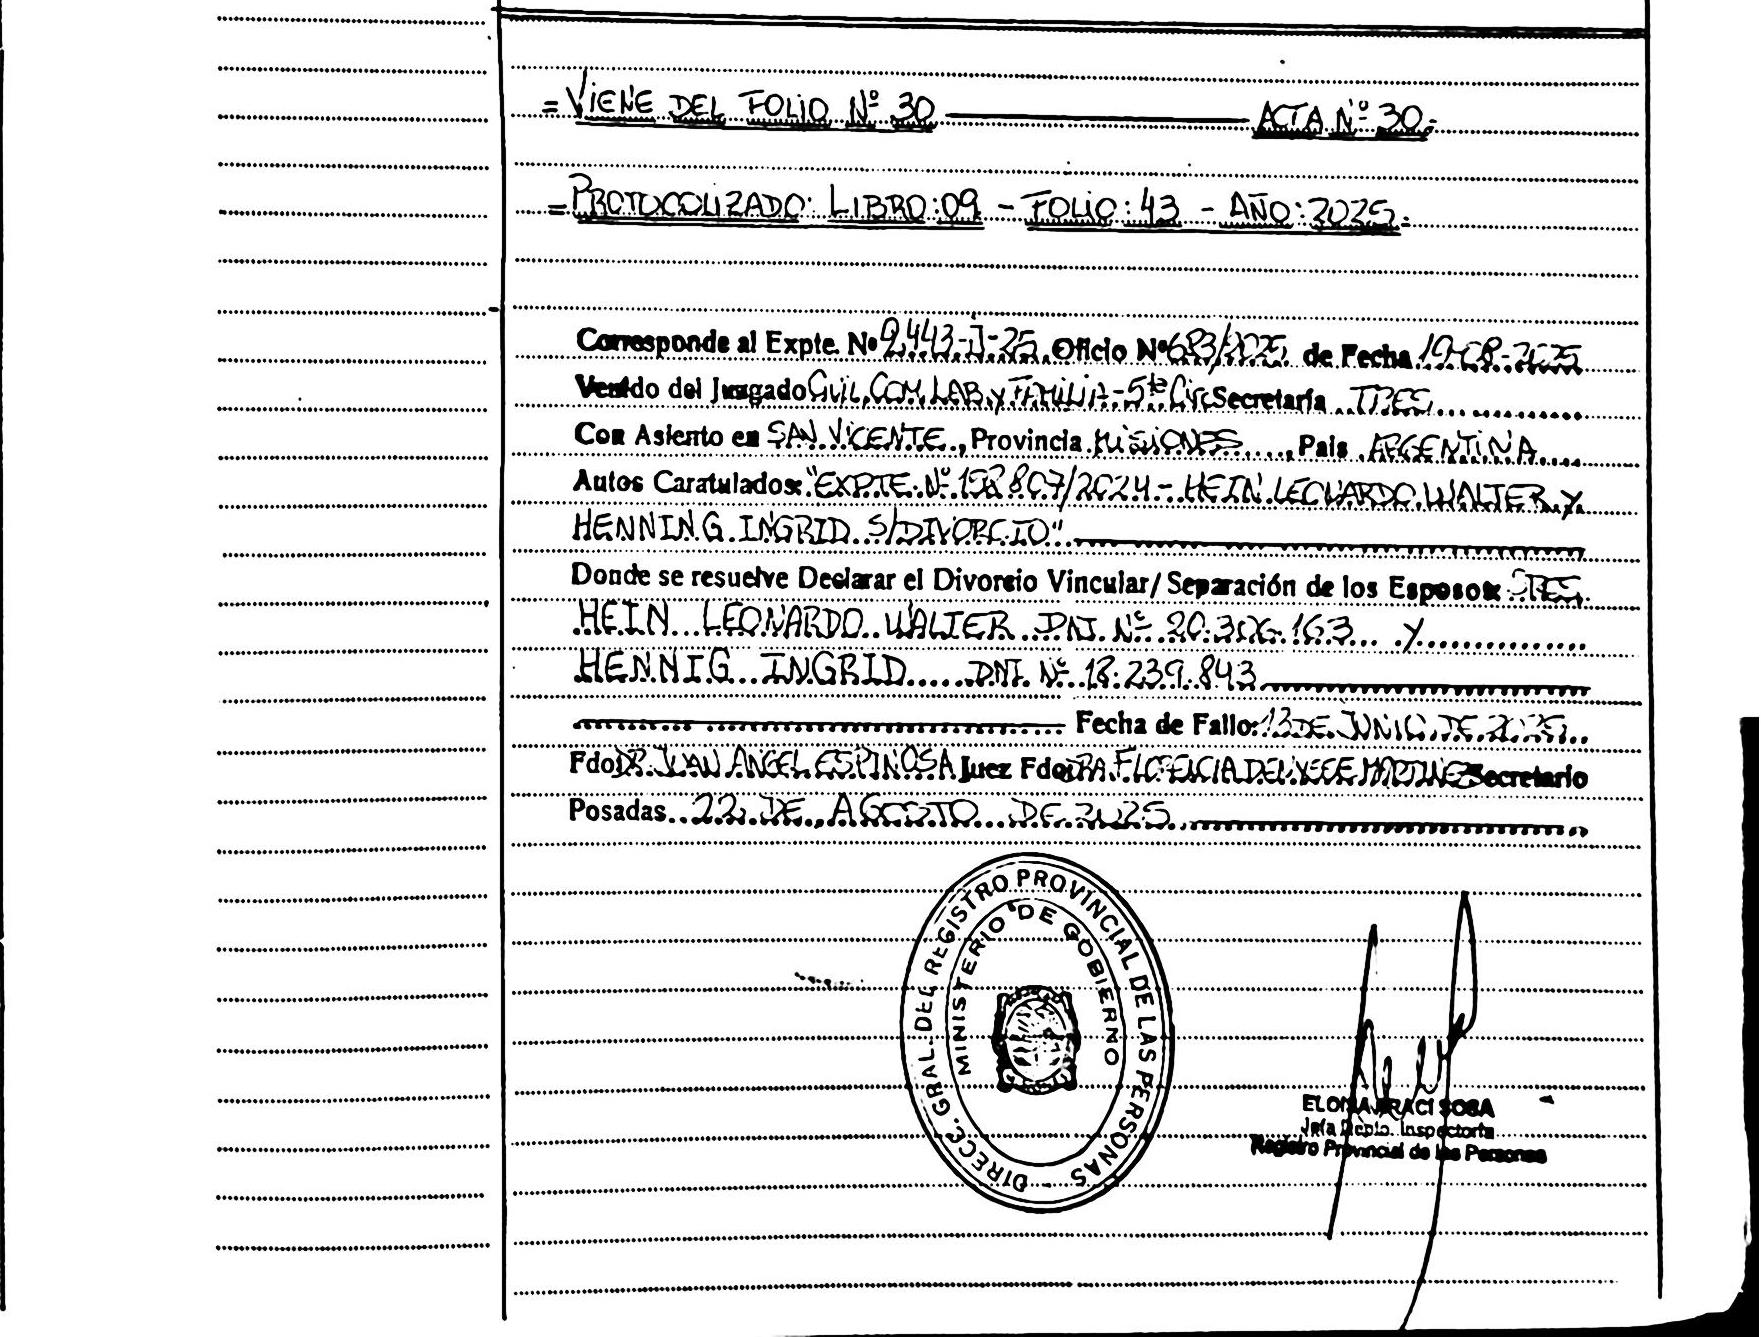 =VIENE DEL FOLIO Nº 30 ACTA Nº 30.-
=PROTOCOLIZADO: LIBRO: 09 - FOLIO: 43 - AÑO: 2025.-
Corresponde al Expte. Nº 2443-J-25 Oficio Nº 683/2025 de Fecha 19-08-2025
Venido del Juzgado Civil, Com, Lab y Familia - 5ta Cir. Secretaría TRES
Con Asiento en SAN VICENTE, Provincia MISIONES, País ARGENTINA
Autos Caratulados: "EXPTE. Nº 807/2024 - HEIN LEONARDO WALTER y
HENNING INGRID S/DIVORCIO"
Donde se resuelve Declarar el Divorcio Vincular/ Separación de los Esposos: SRES.
HEIN LEONARDO WALTER DNI. Nº 163 y
HENNIG INGRID DNI. Nº 18.239.843
Fecha de Fallo: 13 DE JUNIO DE 2025
Fdo: DR. JUAN ANGEL ESPINOSA Juez Fdo: DRA. FLORENCIA MARTINEZ Secretario
Posadas 22 DE AGOSTO DE 2025
DIRECC. GRAL. DEL REGISTRO PROVINCIAL DE LAS PERSONAS -
MINISTERIO DE GOBIERNO
SOSA
Jefa Depto. Inspectoría
Registro Provincial de las Personas